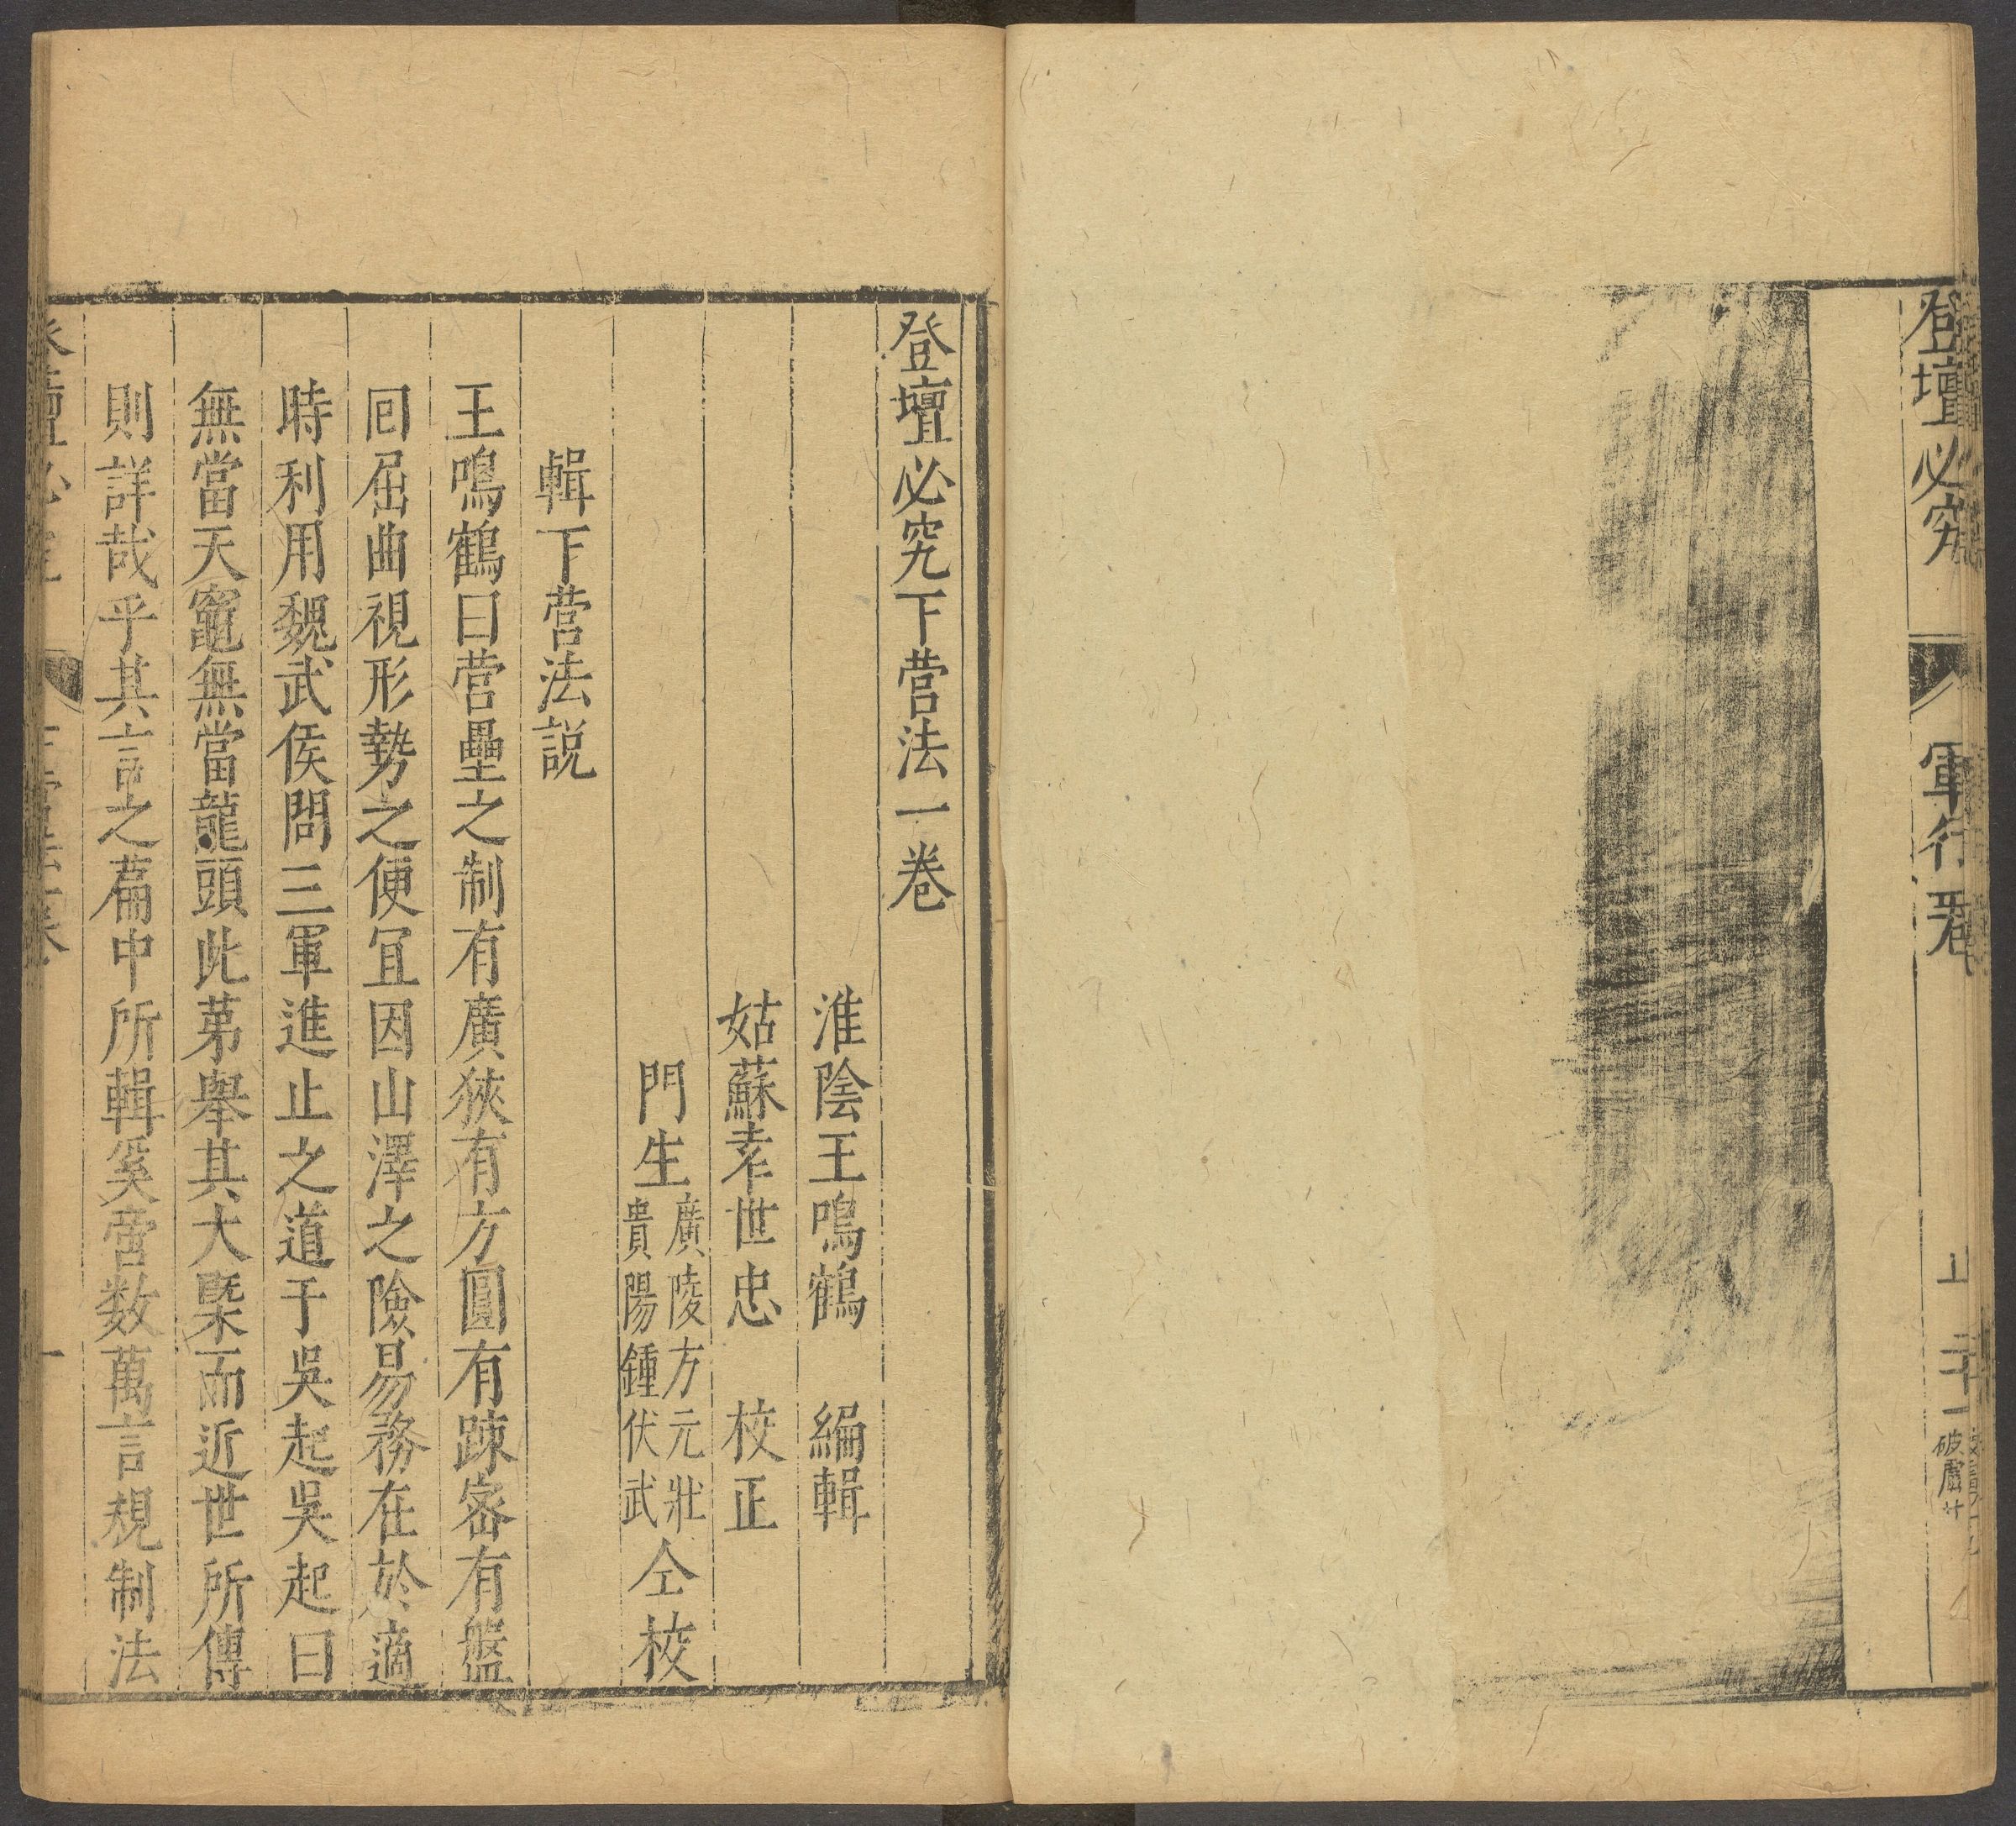 登壇必究
軍行卷
止
登壇必究下營法一卷
淮陰王鳴鶴 編輯
姑蘇李世忠 校正
門生廣陵方元壯
貴陽鍾伏武仝校
輯下營法説
王鳴鶴曰營壘之制有廣狹有方圓有踈宻有盤
囘屈曲視形勢之便冝因山澤之險易務在於適
時利用魏武侯問三軍進止之道于吳起吳起曰
無當天竈無當龍頭此苐舉其大槩而近世所傳
則詳哉乎其言之萹中所輯奚啻数萬言規制法
一